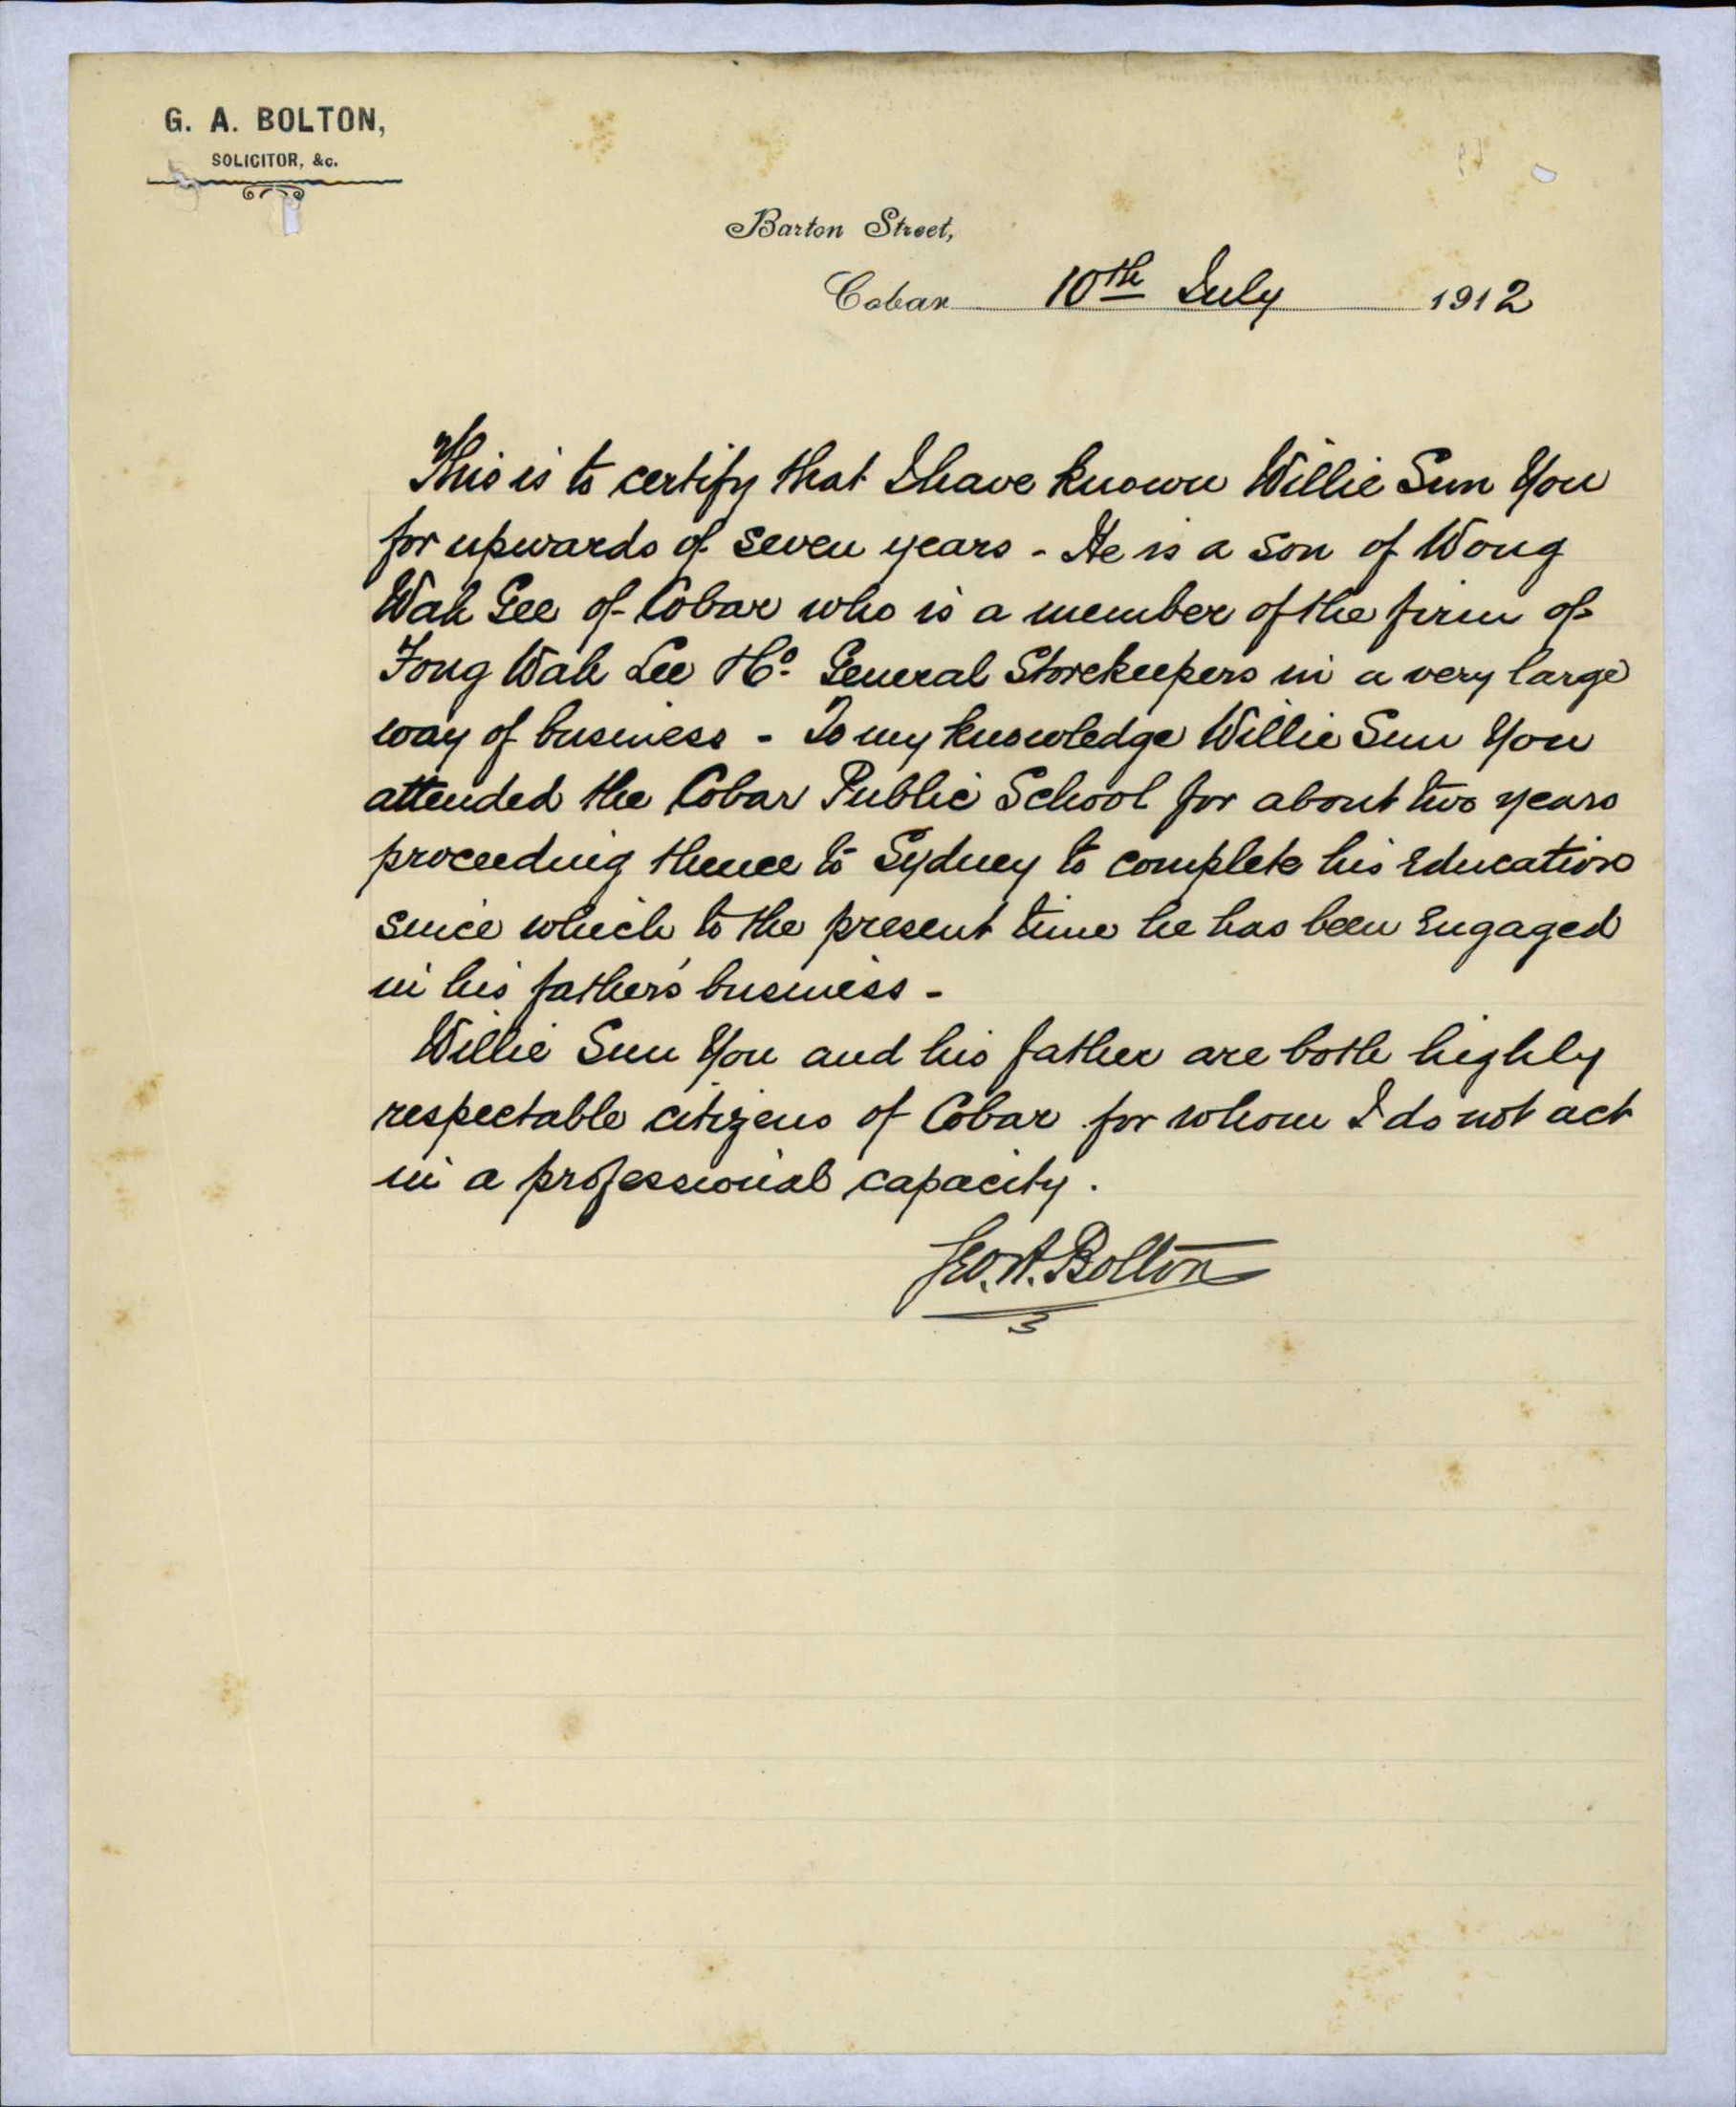 G. A. BOLTON,
SOLICITOR, &c.
Barton Street,
Cobar 10th July 1912
This is to certify that I have known Willie Sun You
for upwards of seven years - He is a son of Wong
Wah Gee of Cobar who is a member of the firm of
Fong Wah Lee &Co. General Storekeepers in a very large
way of business - To my knowledge Willie Sun You
attended the Cobar Public School for about two years
proceeding thence to Sydney to complete his Education
since which to the present time he has been Engaged
in his father's business -
Willie Sun You and his father are both highly
respectable citizens of Cobar for whom I do not act
in a professional capacity.
Geo. A. Bolton